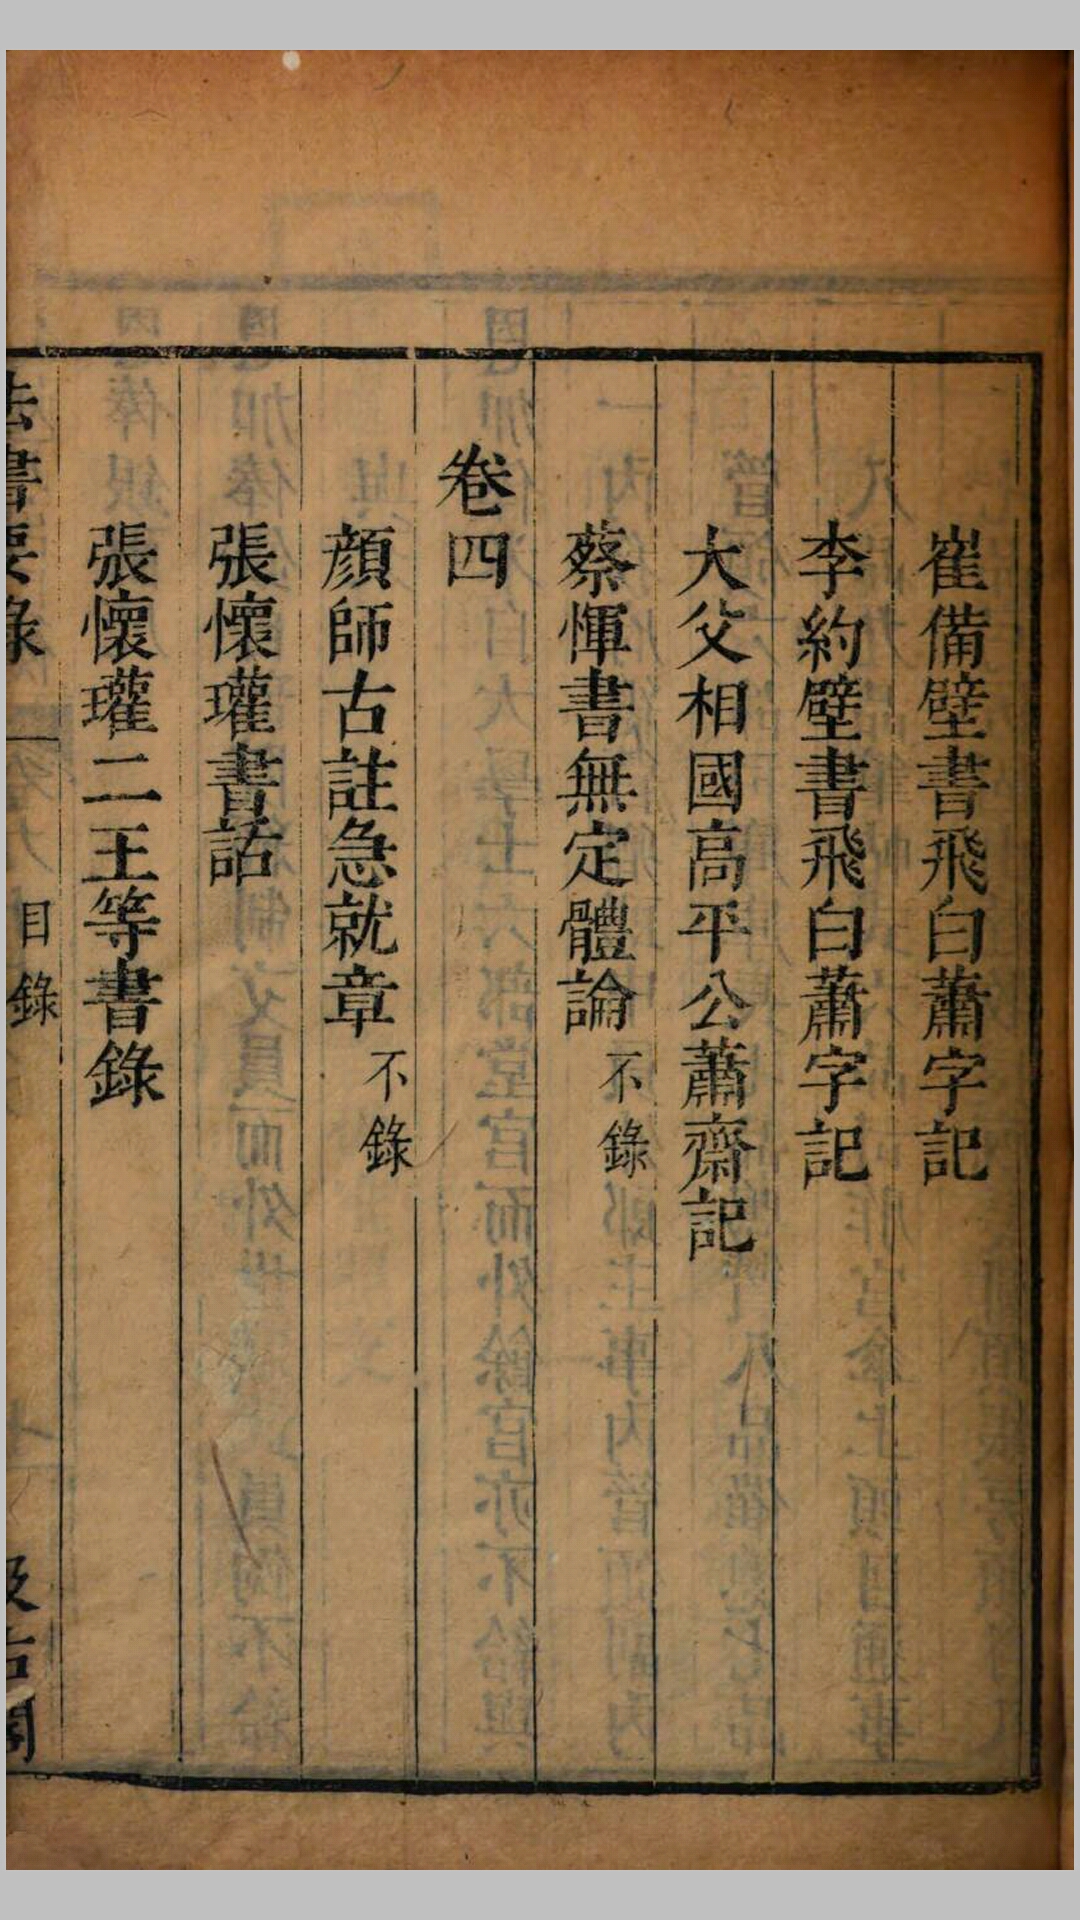 崔備壁書飛白蕭字記
李約壁書飛白蕭字記
大父相國高平公蕭齋記
蔡惲書無定體論 不錄
卷四
顏師古註急就章 不錄
張懷瓘書詁
張懷瓘二王等書錄
法書要錄 目錄 七 汲古閣